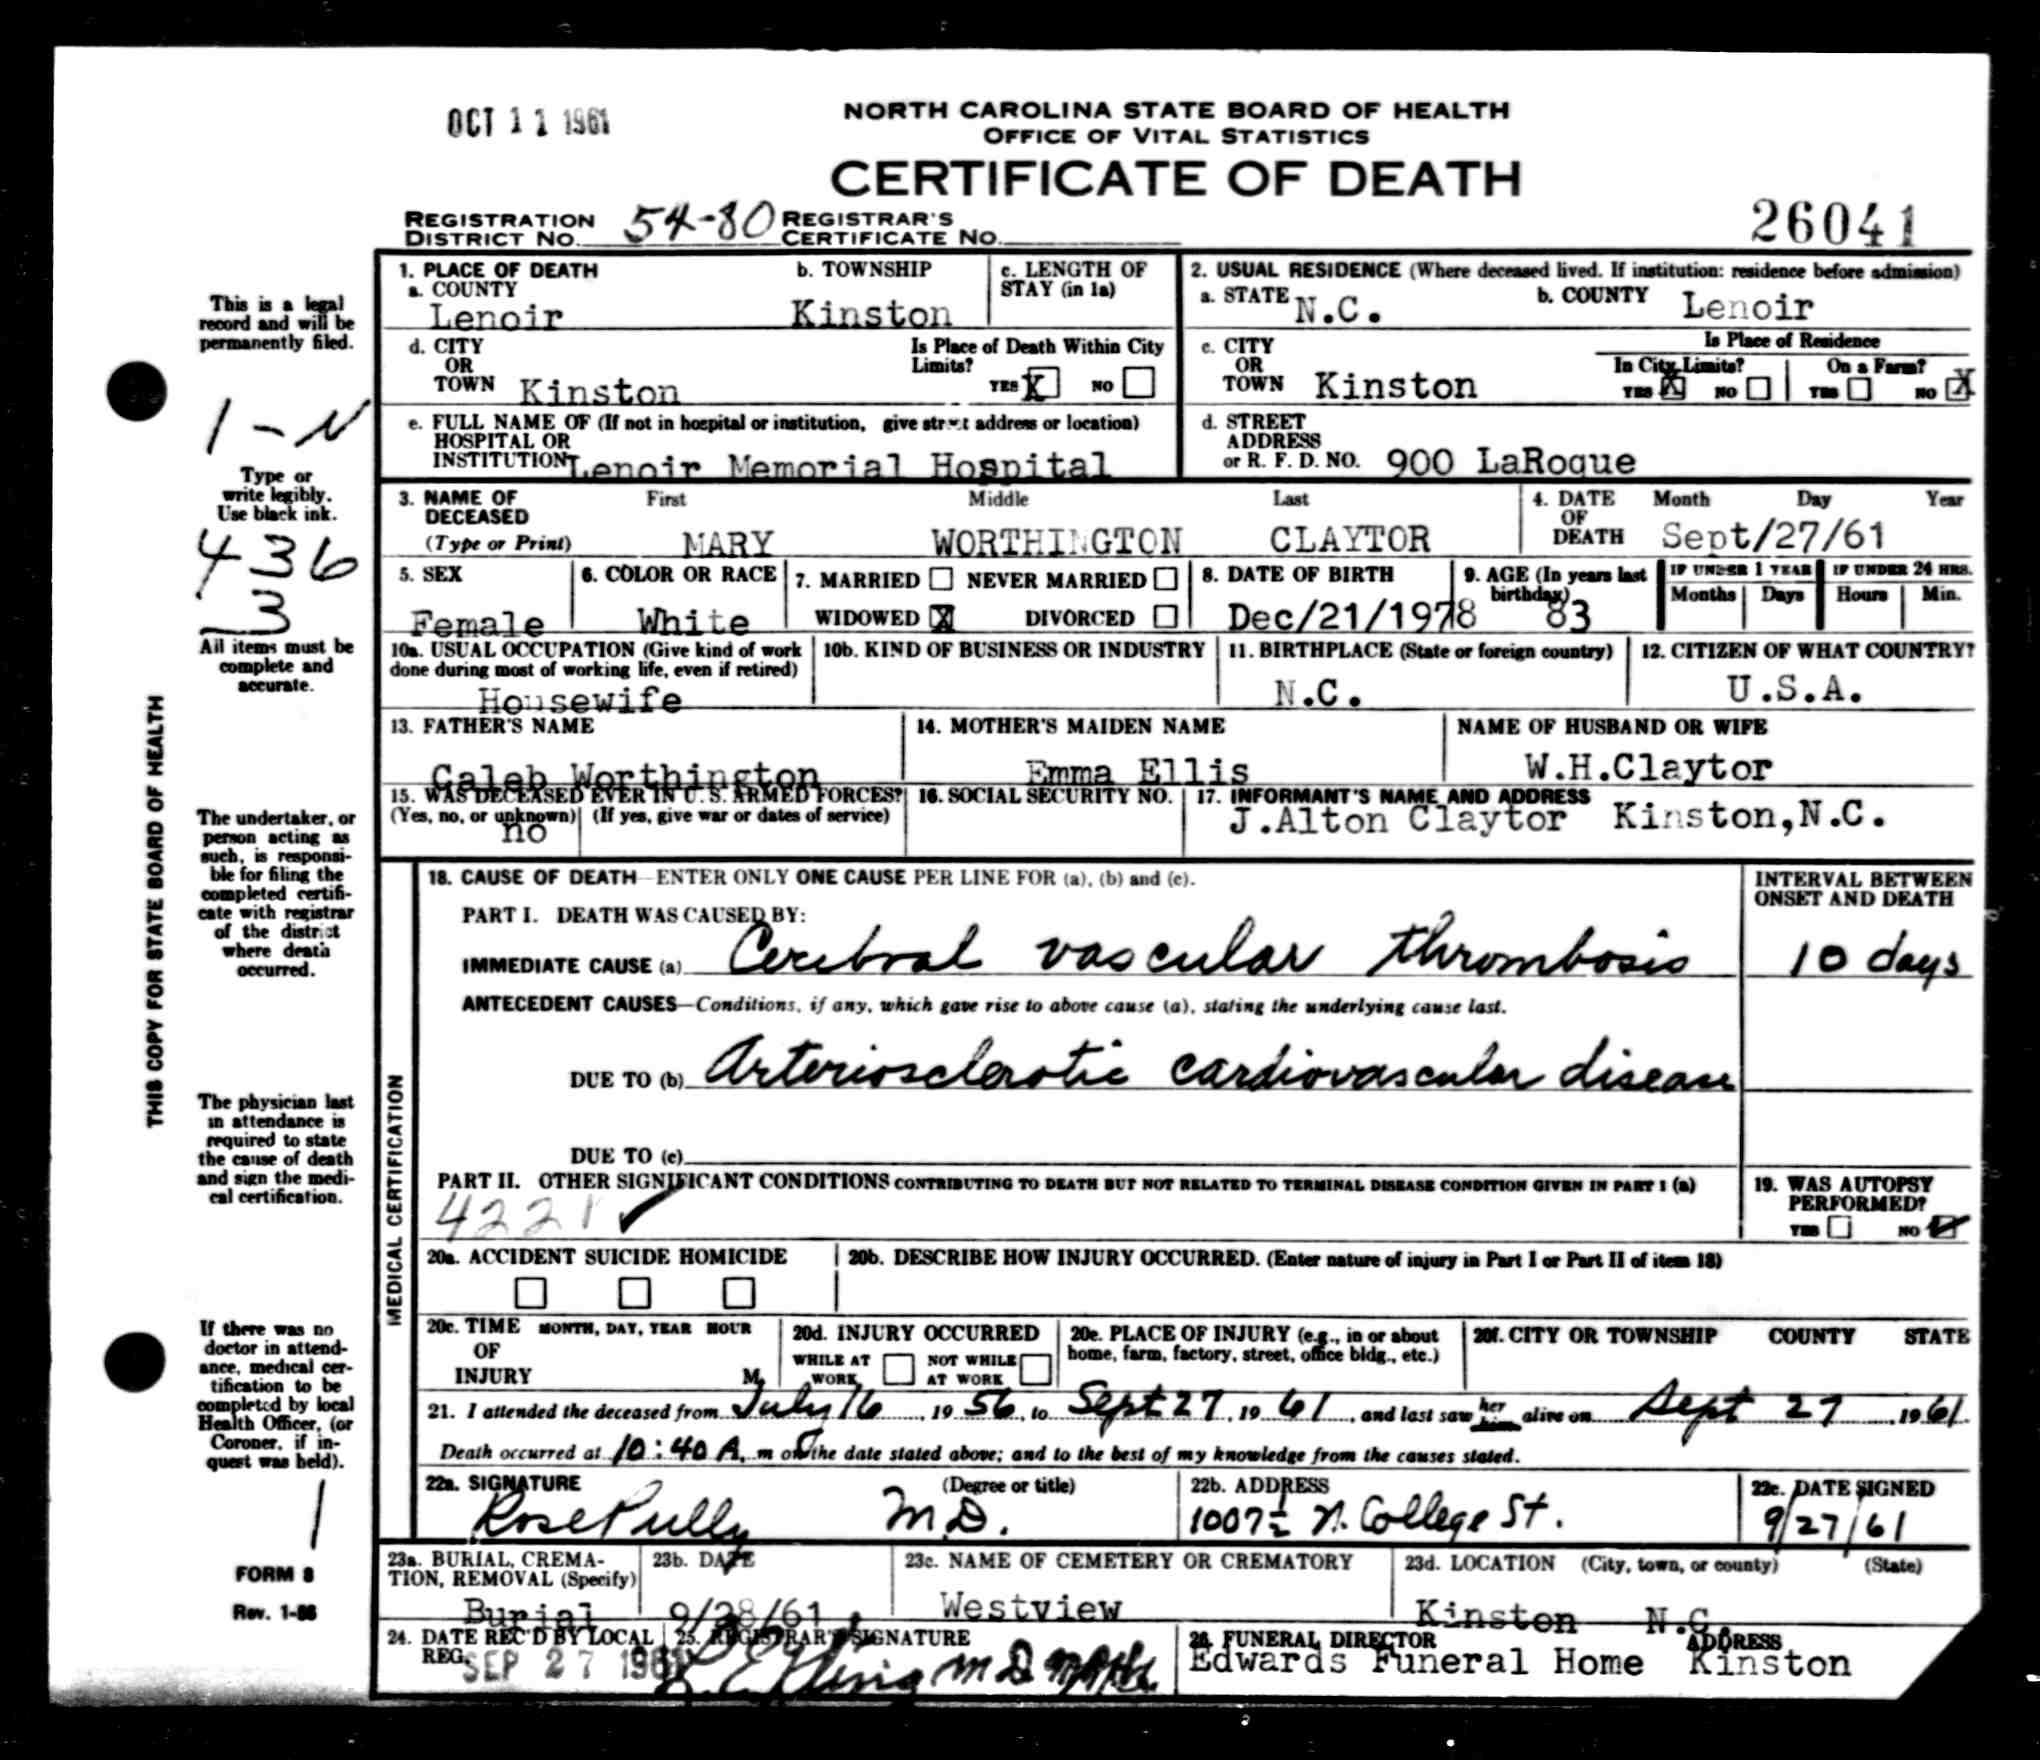 OCT 11 1961
NORTH CAROLINA STATE BOARD OF HEALTH
OFFICE OF VITAL STATISTICS
CERTIFICATE OF DEATH
REGISTRATION DISTRICT NO. 54-80 REGISTRAR'S CERTIFICATE NO.
26041
This is a legal record and will be permanently filed.
1-N
Type or write legibly. Use black ink.
436
3
All items must be complete and accurate.
THIS COPY FOR STATE BOARD OF HEALTH
The undertaker, or person acting as such, is responsible for filing the completed certificate with registrar of the district where death occurred.
The physician last in attendance is required to state the cause of death and sign the medical certification.
If there was no doctor in attendance, medical certification to be completed by local Health Officer, (or Coroner, if inquest was held).
1
FORM 8
Rev. 1-56
1. PLACE OF DEATH
a. COUNTY Lenoir
b. TOWNSHIP Kinston
c. LENGTH OF STAY (in 1a)
2. USUAL RESIDENCE (Where deceased lived. If institution: residence before admission)
a. STATE N.C.
b. COUNTY Lenoir
d. CITY OR TOWN Kinston
Is Place of Death Within City Limits? YES X NO
c. CITY OR TOWN Kinston
Is Place of Residence
In City Limits? YES X NO
On a Farm? YES NO X
e. FULL NAME OF (If not in hospital or institution, give street address or location)
HOSPITAL OR INSTITUTION Lenoir Memorial Hospital
d. STREET ADDRESS or R. F. D. NO. 900 LaRoque
3. NAME OF DECEASED (Type or Print)
First Middle Last
MARY WORTHINGTON CLAYTOR
4. DATE OF DEATH Month Day Year
Sept/27/61
5. SEX Female
6. COLOR OR RACE White
7. MARRIED NEVER MARRIED
WIDOWED X DIVORCED
8. DATE OF BIRTH Dec/21/1978
9. AGE (In years last birthday) 83
IF UNDER 1 YEAR Months Days
IF UNDER 24 HRS. Hours Min.
10a. USUAL OCCUPATION (Give kind of work done during most of working life, even if retired) Housewife
10b. KIND OF BUSINESS OR INDUSTRY
11. BIRTHPLACE (State or foreign country) N.C.
12. CITIZEN OF WHAT COUNTRY? U.S.A.
13. FATHER'S NAME Caleb Worthington
14. MOTHER'S MAIDEN NAME Emma Ellis
NAME OF HUSBAND OR WIFE W.H.Claytor
15. WAS DECEASED EVER IN U. S. ARMED FORCES?
(Yes, no, or unknown) (If yes, give war or dates of service)
no
16. SOCIAL SECURITY NO.
17. INFORMANT'S NAME AND ADDRESS
J.Alton Claytor Kinston,N.C.
MEDICAL CERTIFICATION
18. CAUSE OF DEATH—ENTER ONLY ONE CAUSE PER LINE FOR (a), (b) and (c).
INTERVAL BETWEEN ONSET AND DEATH
PART I. DEATH WAS CAUSED BY:
IMMEDIATE CAUSE (a) Cerebral vascular thrombosis
10 days
ANTECEDENT CAUSES—Conditions, if any, which gave rise to above cause (a), stating the underlying cause last.
DUE TO (b) Arteriosclerotic cardiovascular disease
DUE TO (c)
PART II. OTHER SIGNIFICANT CONDITIONS CONTRIBUTING TO DEATH BUT NOT RELATED TO TERMINAL DISEASE CONDITION GIVEN IN PART I (a)
4221 ✓
19. WAS AUTOPSY PERFORMED?
YES NO ✓
20a. ACCIDENT SUICIDE HOMICIDE
20b. DESCRIBE HOW INJURY OCCURRED. (Enter nature of injury in Part I or Part II of item 18)
20c. TIME OF INJURY MONTH, DAY, YEAR HOUR M.
20d. INJURY OCCURRED
WHILE AT WORK NOT WHILE AT WORK
20e. PLACE OF INJURY (e.g., in or about home, farm, factory, street, office bldg., etc.)
20f. CITY OR TOWNSHIP COUNTY STATE
21. I attended the deceased from July 16, 1956, to Sept 27, 1961, and last saw her him alive on Sept 27 1961.
Death occurred at 10:40 A. m on the date stated above; and to the best of my knowledge from the causes stated.
22a. SIGNATURE (Degree or title)
Rose Pully M.D.
22b. ADDRESS
1007½ N. College St.
22c. DATE SIGNED
9/27/61
23a. BURIAL, CREMATION, REMOVAL (Specify) Burial
23b. DATE 9/28/61
23c. NAME OF CEMETERY OR CREMATORY Westview
23d. LOCATION (City, town, or county) (State)
Kinston N.C.
24. DATE REC'D BY LOCAL REG. SEP 27 1961
25. REGISTRAR'S SIGNATURE
M D
26. FUNERAL DIRECTOR ADDRESS
Edwards Funeral Home Kinston